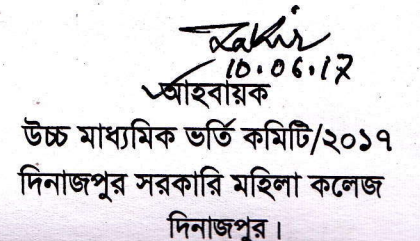 Zakir
10.06.17
আহবায়ক
উচ্চ মাধ্যমিক ভর্তি কমিটি/২০১৭
দিনাজপুর সরকারি মহিলা কলেজ
দিনাজপুর।